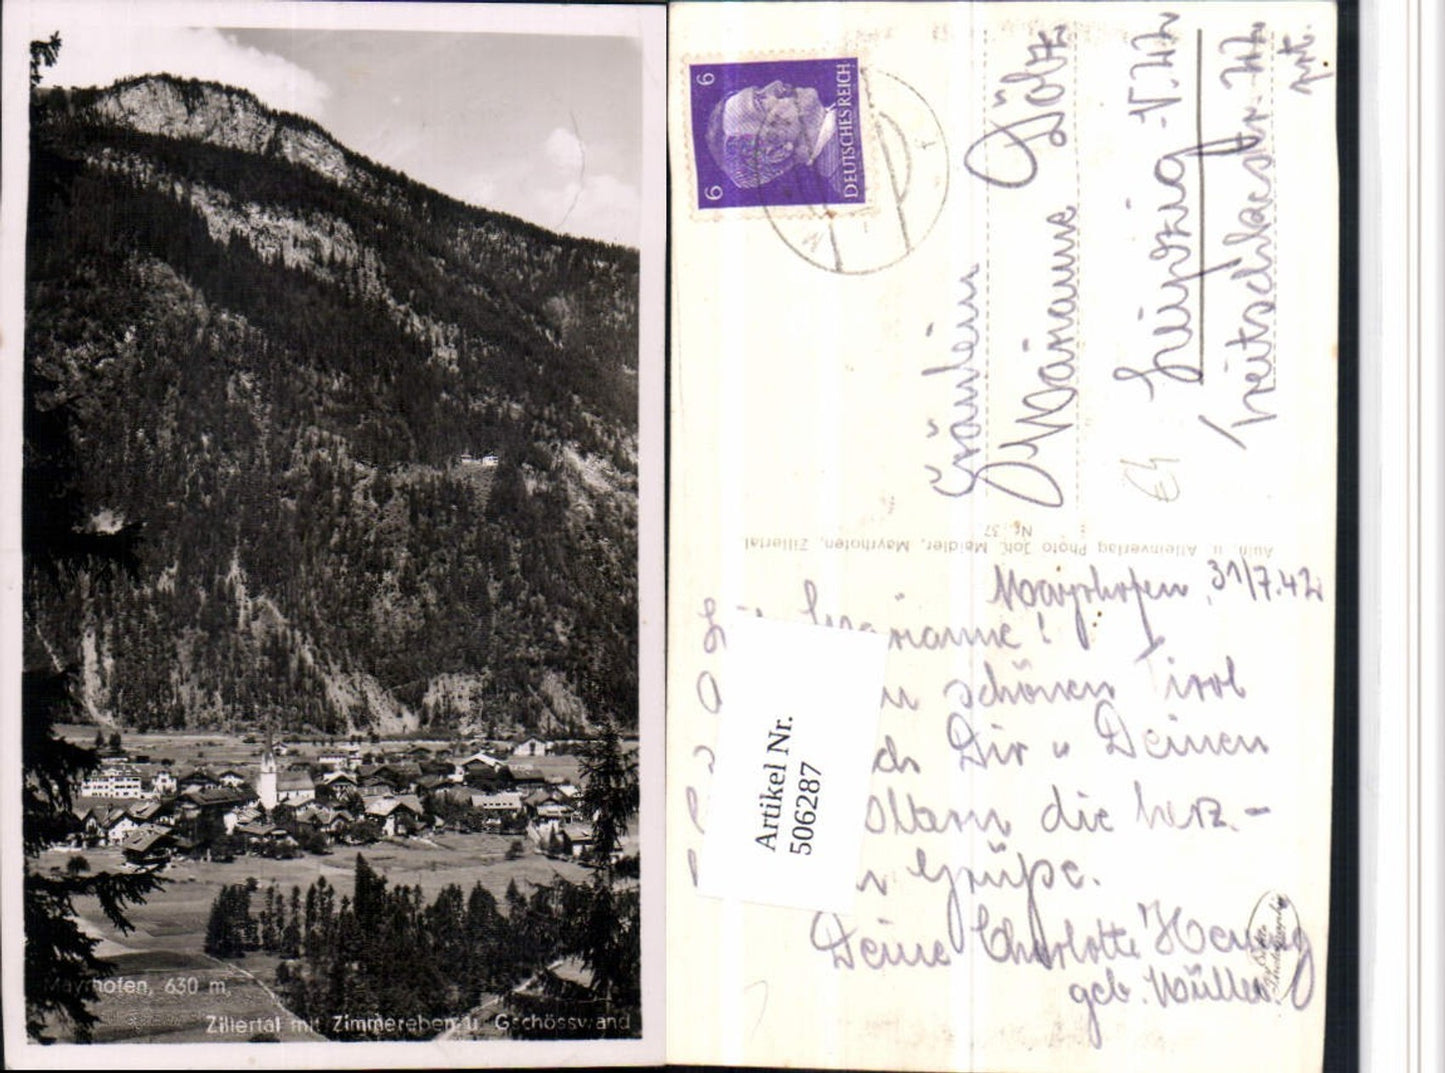 Mayrhofen, 630 m,
Zillertal mit Zimmereben u. Gschösswand
6
6
DEUTSCHES REICH
Fräulein
Marianne
Leipzig - V. 42
pt.
Aufn. u. Alleinverlag Photo Joh. Meidler, Mayrhofen, Zillertal.
Nr. 37
Mayrhofen, 31/7.42
Marianne!
schönen Tirol
Dir u Deinen
die herz-
Grüße.
Deine Charlotte
geb. Müller.
Artikel Nr.
506287